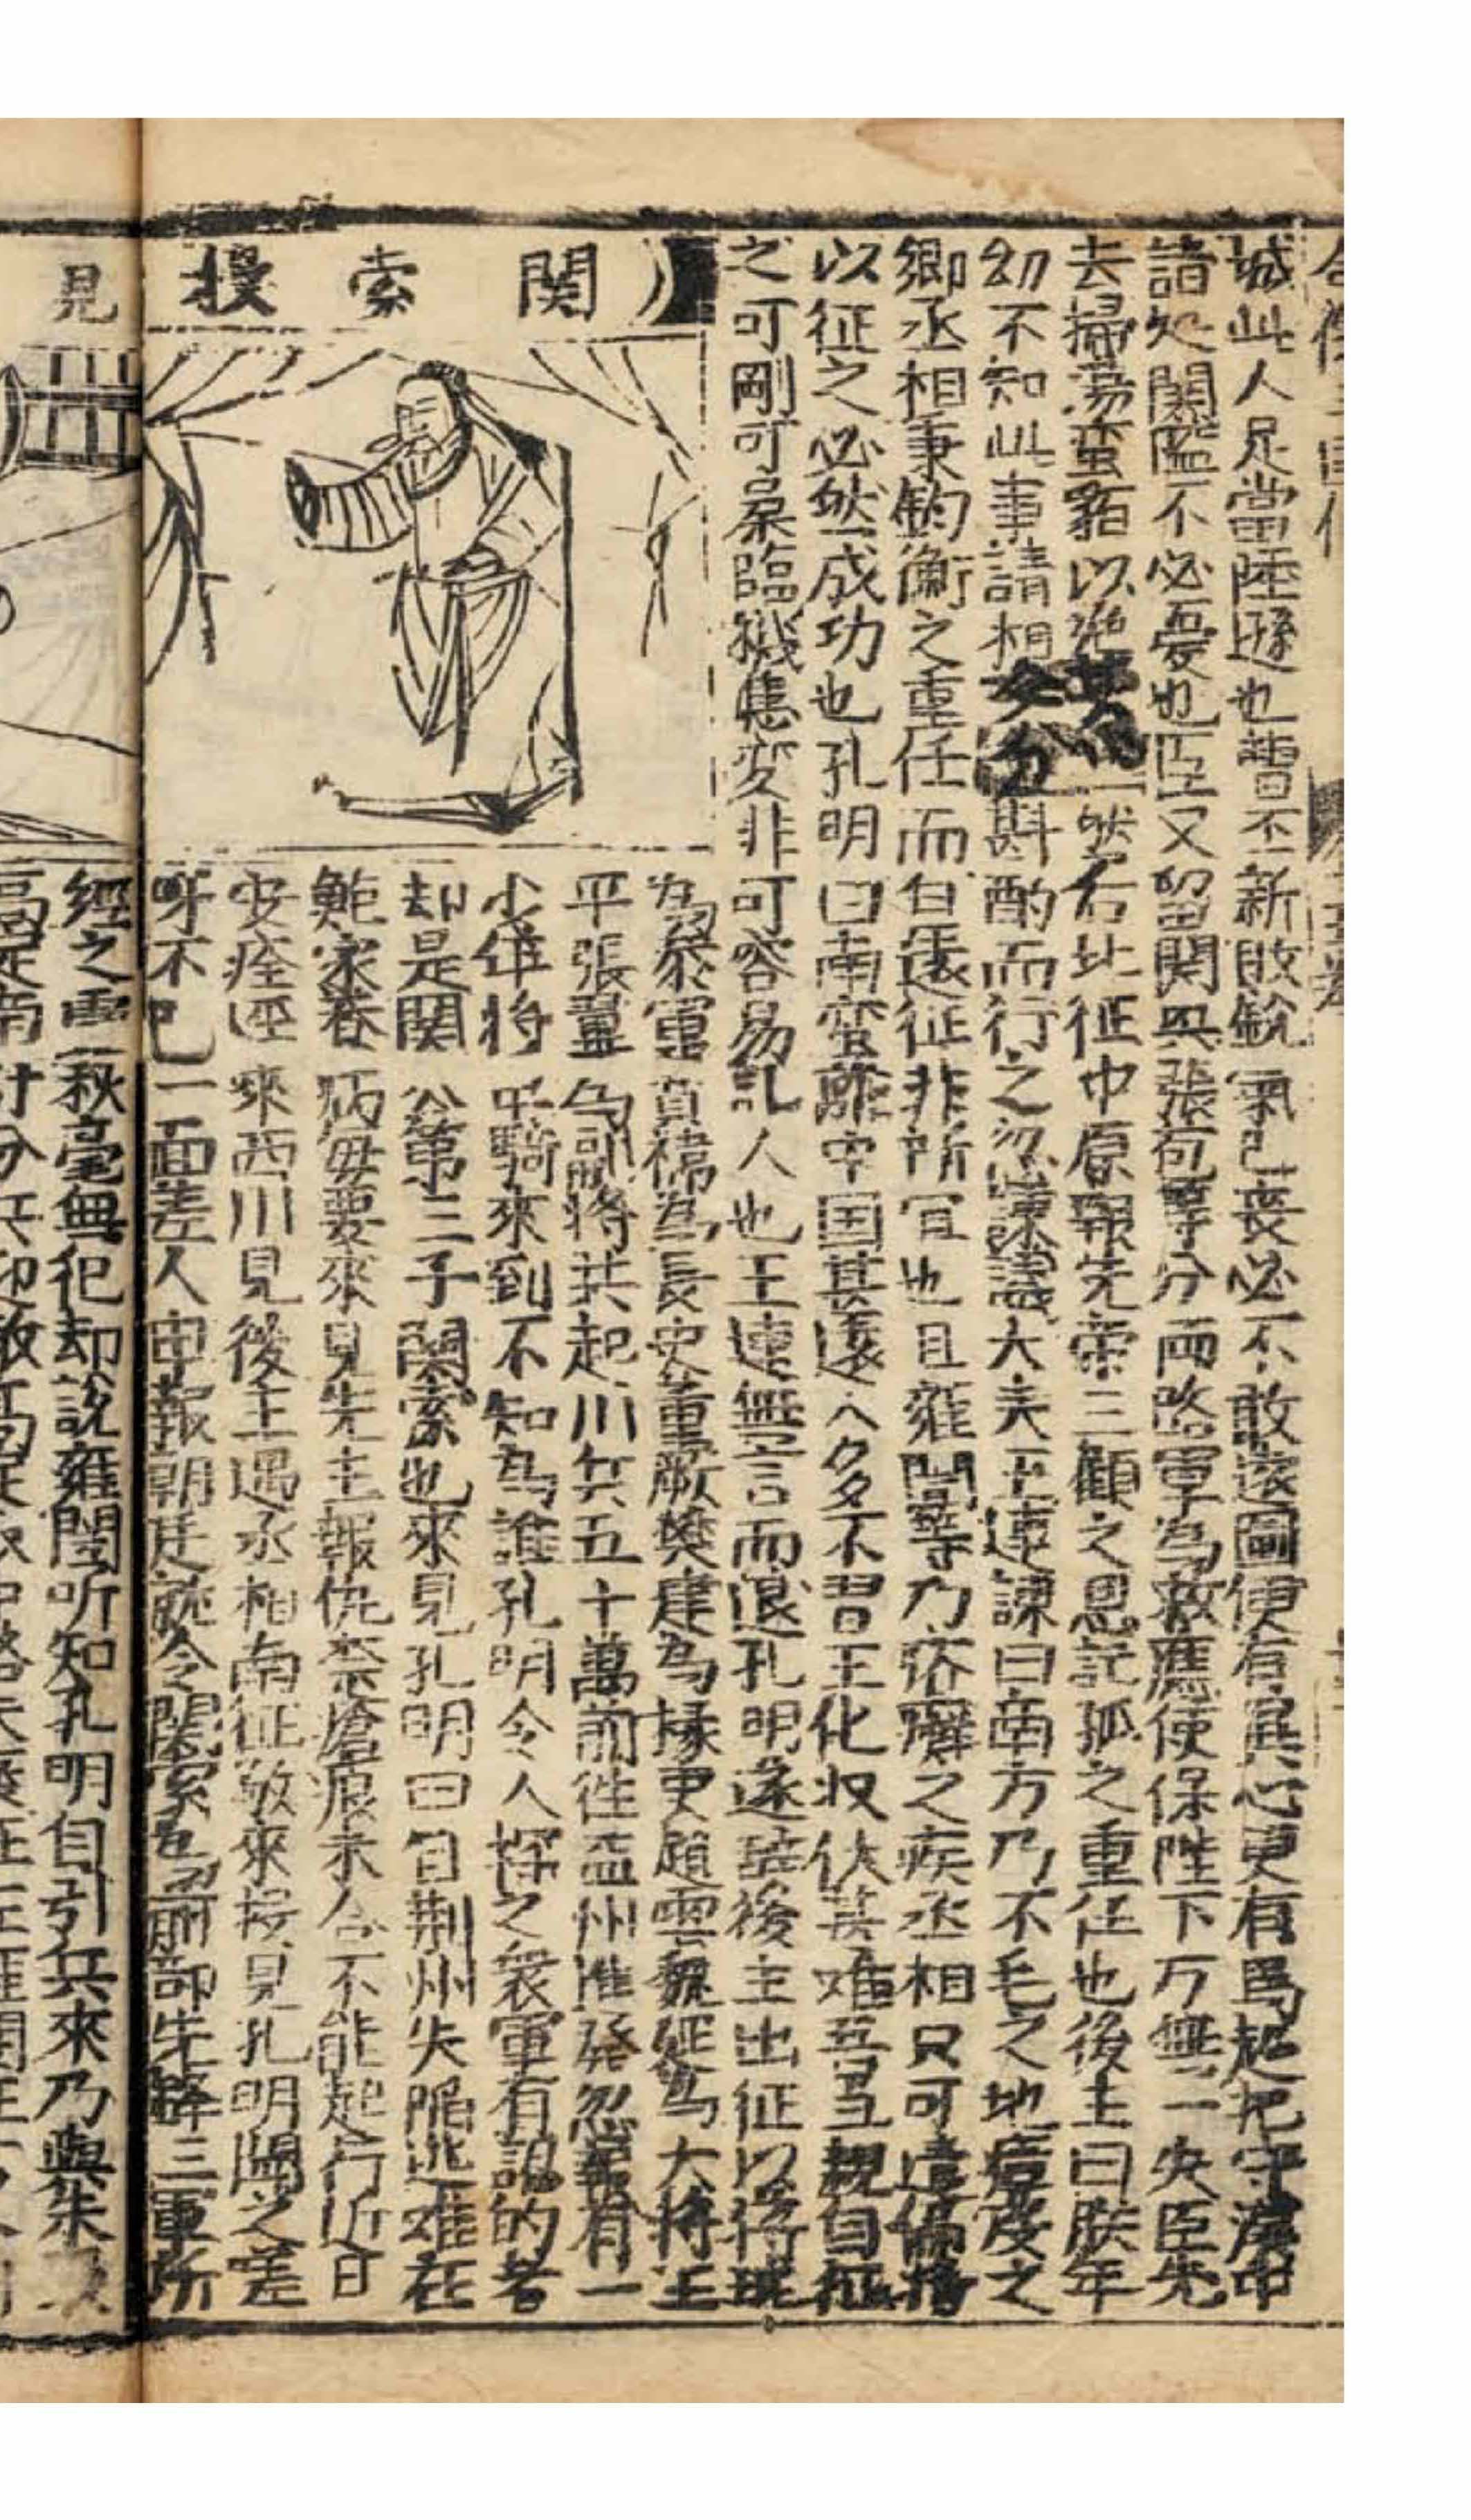 城此人足當陸遜也曹丕新敗銳氣已喪必不敢遠圖便有異心更有馬超把守漢中
諸処関隘不必憂也臣又留関興張苞等分両路軍為救應使保陛下万無一失臣先
去掃蕩蛮貊以絶 然右北征中原報先帝三顧之恩託孤之重任也後主曰朕年
幼不知此事請相父 斟酌而行之忽諫議大夫王連諫曰南方乃不毛之地瘴疫之
卿丞相秉鈞衡之重任而自遠征非所宜也且雍闓等乃疥癬之疾丞相只可遣偏將
以征之必然成功也孔明曰南蛮離中国甚遠人多不習王化収伏甚难吾当親自征
之可剛可柔臨機應変非可容易託人也王連無言而退孔明遂辞後主出征以蒋琬
為參軍費禕為長史董厥樊建為掾吏趙雲魏延為大將王
平張翼為副將共起川兵五十萬前徃益州進發忽報有一
少年將単騎來到不知為誰孔明令人探之衆軍有認的者
却是関公第三子関索也來見孔明曰自荆州失陷迯难在
鮑家養病每要來見先主報仇奈瘡痕未合不能起行近日
安痊逕來西川見後主遇丞相南征敬來接見孔明聞之嗟
呀不已一面差人申報朝廷就令関索為前部先鋒三軍所
經之處秋毫無犯却說雍闓听知孔明自引兵來乃與朱
関索投
見